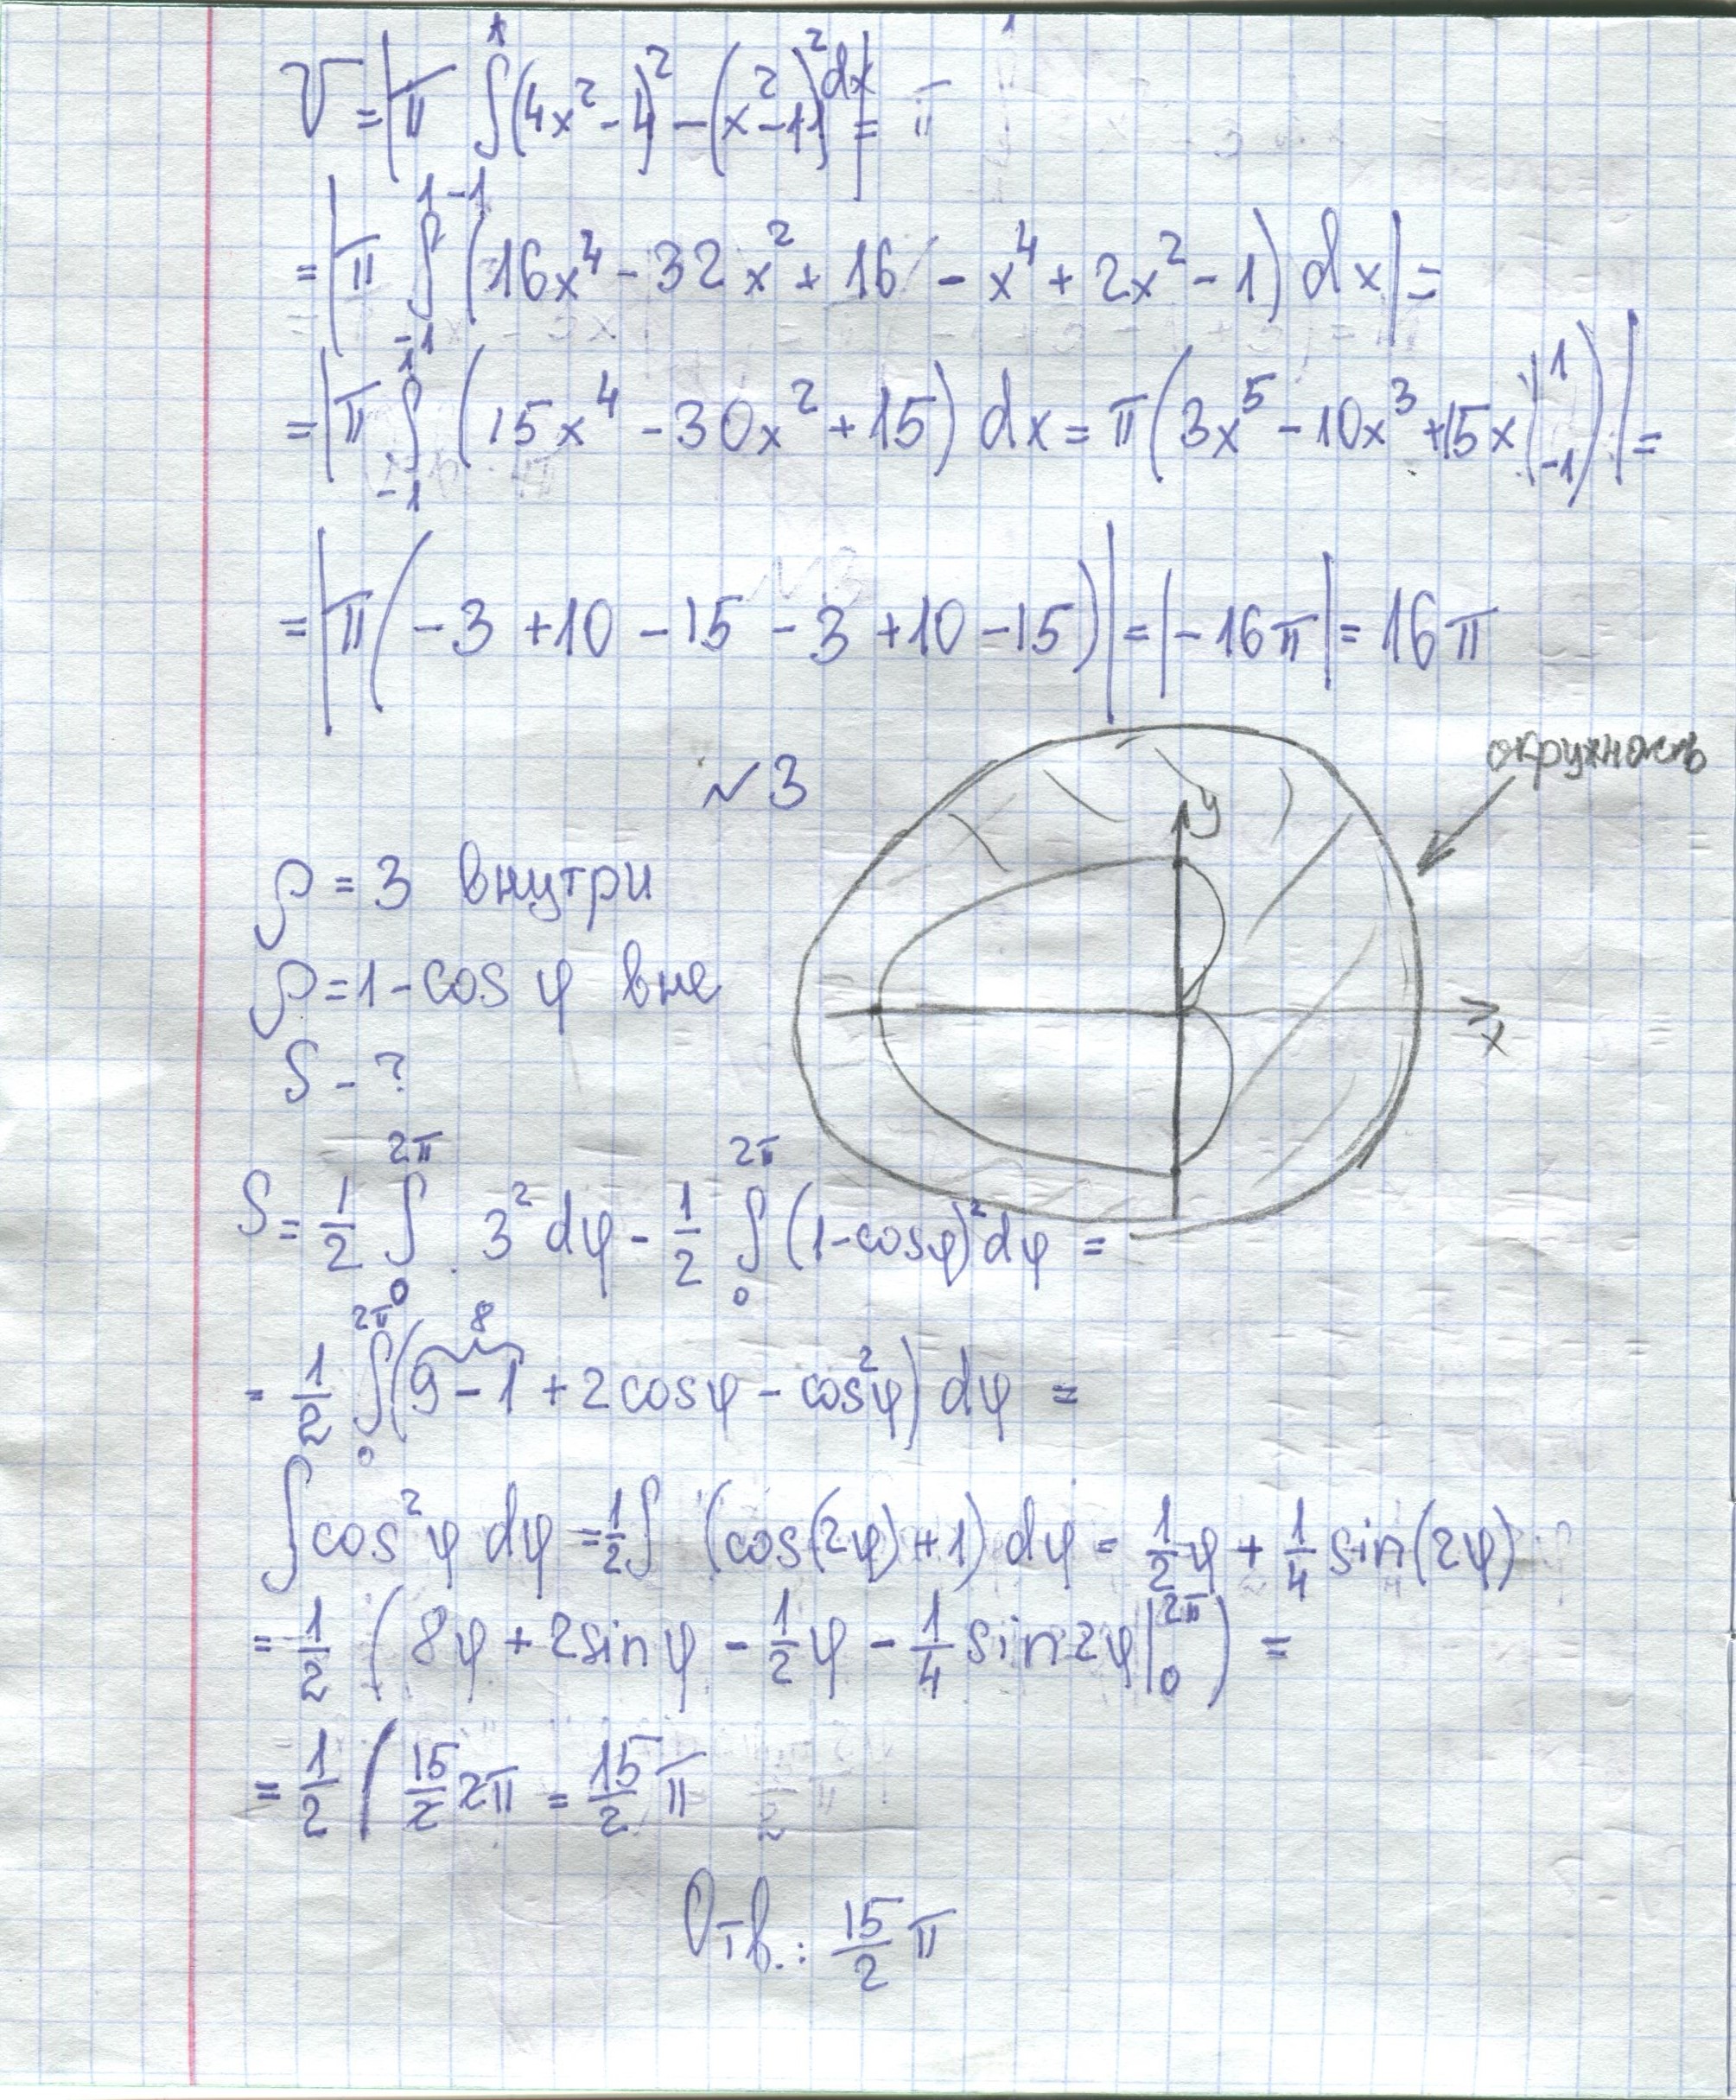 V = |π ∫₋₁¹ (4x² - 4)² - (x² - 1)² dx| = π
= |π ∫₋₁¹ (16x⁴ - 32x² + 16 - x⁴ + 2x² - 1) dx| =
= |π ∫₋₁¹ (15x⁴ - 30x² + 15) dx = π(3x⁵ - 10x³ + 15x |₋₁¹)| =
= |π(-3 + 10 - 15 - 3 + 10 - 15)| = |-16π| = 16π
№3
окружность
y
x
ρ = 3 внутри
ρ = 1 - cos φ вне
S - ?
S = 1/2 ∫₀^2π 3² dφ - 1/2 ∫₀^2π (1 - cosφ)² dφ =
8
= 1/2 ∫₀^2π (9 - 1 + 2cosφ - cos²φ) dφ =
∫ cos²φ dφ = 1/2 ∫ (cos(2φ) + 1) dφ = 1/2 φ + 1/4 sin(2φ)
= 1/2 (8φ + 2sinφ - 1/2 φ - 1/4 sin2φ |₀^2π) =
= 1/2 ( 15/2 2π = 15/2 π
Отв.: 15/2 π